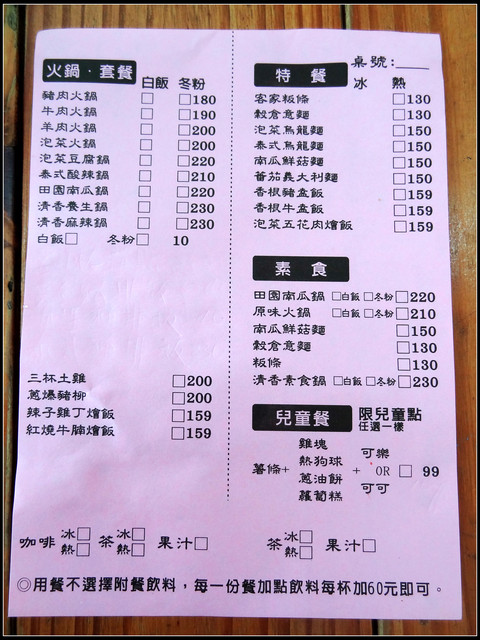 火鍋‧套餐 白飯 冬粉
豬肉火鍋 □ □180
牛肉火鍋 □ □190
羊肉火鍋 □ □200
泡菜火鍋 □ □200
泡菜豆腐鍋 □ □220
泰式酸辣鍋 □ □210
田園南瓜鍋 □ □220
清香養生鍋 □ □230
清香麻辣鍋 □ □230
白飯□ 冬粉□ 10
三杯土雞 □200
蔥爆豬柳 □200
辣子雞丁燴飯 □159
紅燒牛腩燴飯 □159
咖啡 冰□ 熱□ 茶 冰□ 熱□ 果汁□
桌號:____
特餐 冰 熱
客家粄條 □130
穀倉意麵 □130
泡菜烏龍麵 □150
泰式烏龍麵 □150
南瓜鮮菇麵 □150
番茄義大利麵 □150
香椒豬盒飯 □159
香椒牛盒飯 □159
泡菜五花肉燴飯 □159
素食
田園南瓜鍋 □白飯 □冬粉 □220
原味火鍋 □白飯 □冬粉 □210
南瓜鮮菇麵 □150
穀倉意麵 □130
粄條 □130
清香素食鍋 □白飯 □冬粉 □230
兒童餐 限兒童點
任選一樣
雞塊
熱狗球 可樂
薯條+ + OR □ 99
蔥油餅 可可
蘿蔔糕
茶 冰□ 熱□ 果汁□
◎用餐不選擇附餐飲料，每一份餐加點飲料每杯加60元即可。